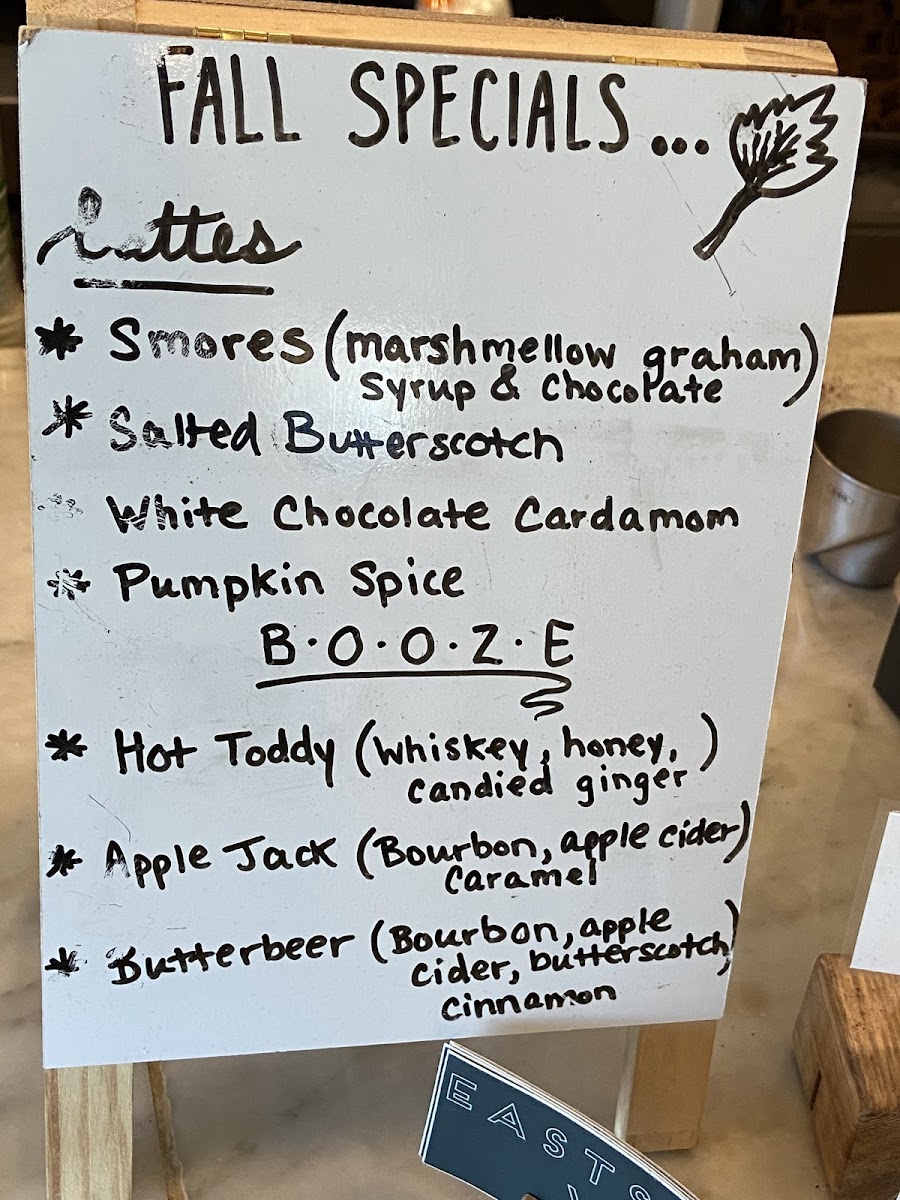 FALL SPECIALS...
Lattes
* Smores (marshmellow graham)
syrup & chocolate
* Salted Butterscotch
White Chocolate Cardamom
* Pumpkin Spice
B·O·O·Z·E
* Hot Toddy (whiskey, honey, )
candied ginger
* Apple Jack (Bourbon, apple cider)
Caramel
* Butterbeer (Bourbon, apple
cider, butterscotch,)
cinnamon
EAST